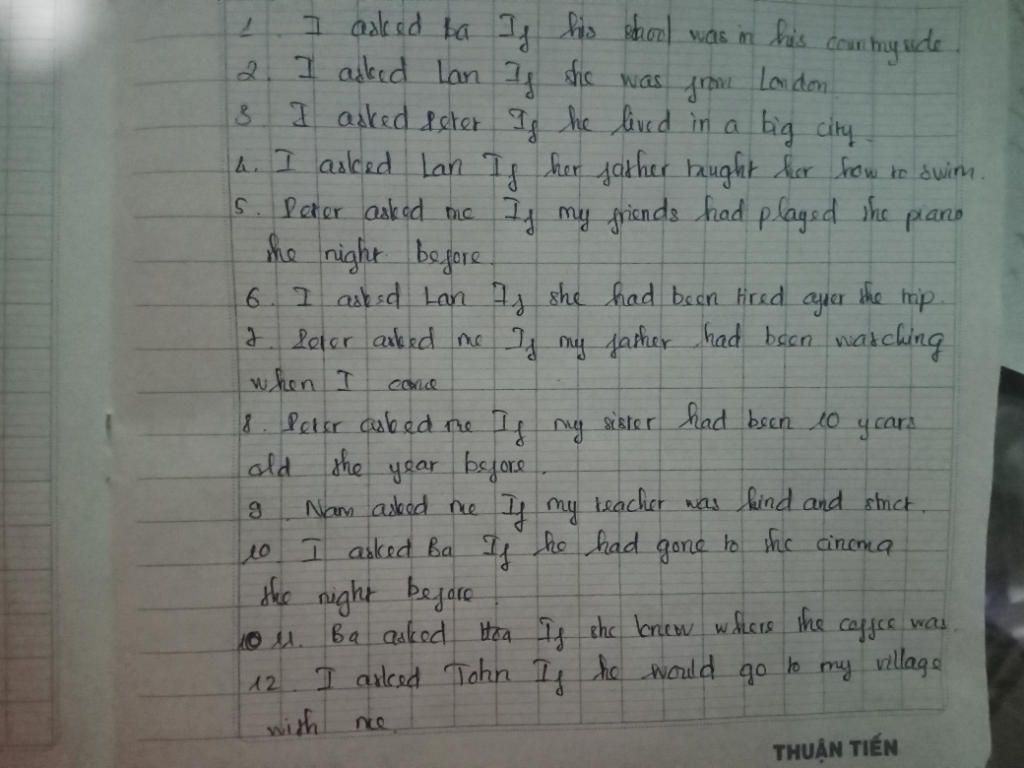 1. I asked Ba If his school was in his countryside.
2. I asked Lan If she was from London
3 I asked Peter If he lived in a big city.
4. I asked Lan If her father taught her how to swim.
5. Peter asked me If my friends had played the piano
the night before.
6. I asked Lan If she had been tired after the trip.
7. Peter asked me If my father had been watching
when I came
8. Peter asked me If my sister had been 10 years
old the year before.
9. Nam asked me If my teacher was kind and strict.
10 I asked Ba If he had gone to the cinema
the night before
11. Ba asked Hoa If she knew where the coffee was.
12. I asked John If he would go to my village
with me.
THUẬN TIẾN